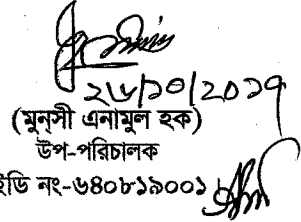 ২৬/১০/২০১৭
(মুন্‌সী এনামুল হক)
উপ-পরিচালক
ইডি নং-৬৪০৮১৯০০১